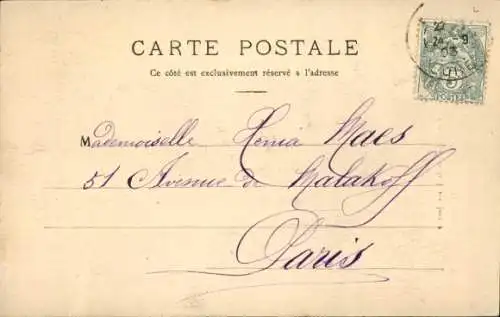 CARTE POSTALE
Ce côté est exclusivement réservé a l'adresse
Mademoiselle Xenia Maes
51 Avenue de Malakoff
Paris